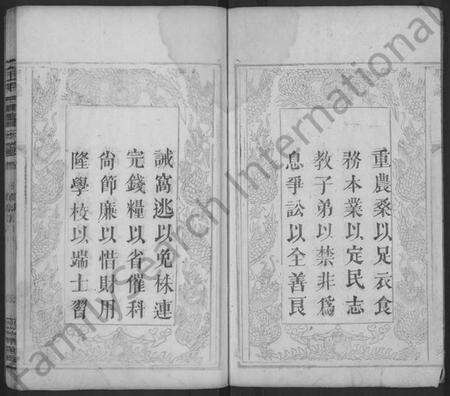 重農桑以足衣食
務本業以定民志
教子弟以禁非為
息爭訟以全善良
誡窩逃以免株連
完錢糧以省催科
尙節廉以惜財用
隆學校以端士習
FamilySearch International